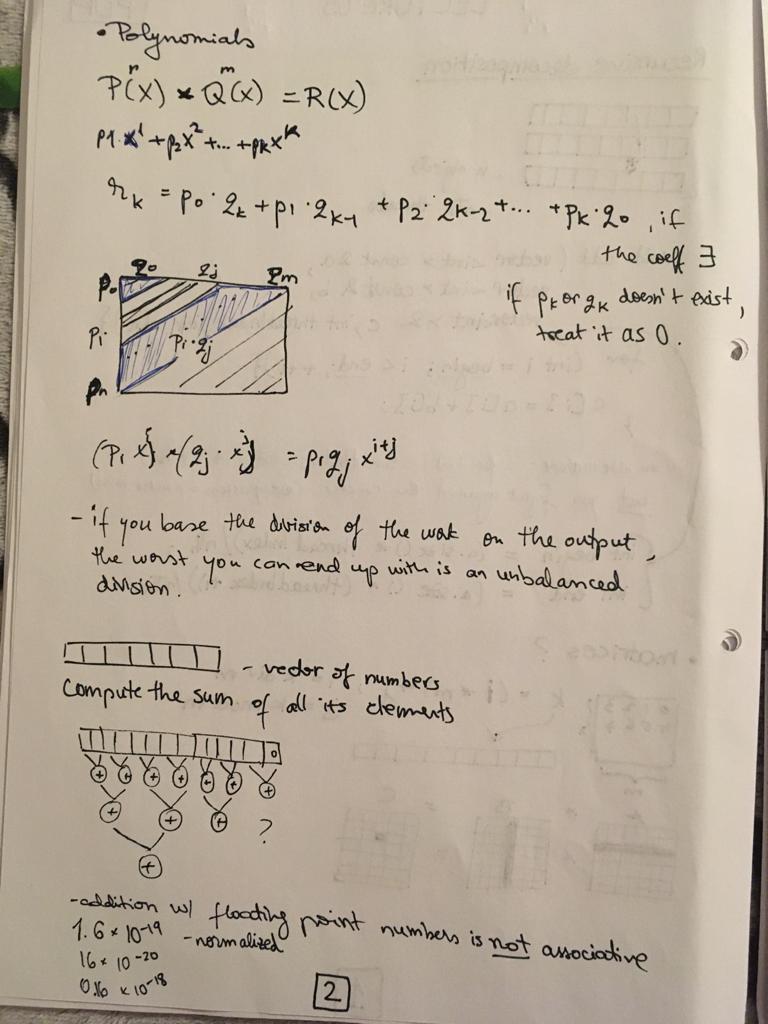 • Polynomials
n m
P(X) * Q(X) = R(X)
p1·x¹ + p₂x² + ... + pₖxᵏ
rₖ = p₀·qₖ + p₁·qₖ₋₁ + p₂·qₖ₋₂ + ... + pₖ·q₀, if
the coeff ∃
if pₖ or qₖ doesn't exist,
treat it as 0.
q₀ qⱼ qₘ
p₀
pᵢ
pᵢ·qⱼ
pₙ
(pᵢ xⁱ) * (qⱼ · xʲ) = pᵢqⱼ xⁱ⁺ʲ
- if you base the division of the work on the output,
the worst you can end up with is an unbalanced
division.
- vector of numbers
Compute the sum of all its elements
0
+ + + + + + +
+ + + ?
+
- addition w/ floating point numbers is not associative
1.6 × 10⁻¹⁹ - normalized
16 × 10⁻²⁰
0.16 × 10⁻¹⁸
2